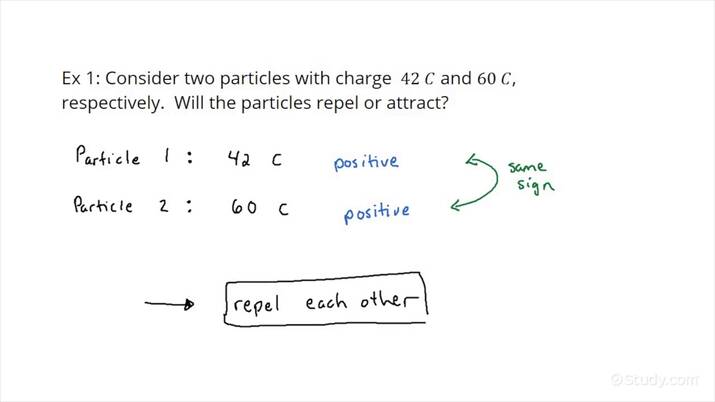 Ex 1: Consider two particles with charge 42 C and 60 C,
respectively. Will the particles repel or attract?
Particle 1 : 42 C positive
same
sign
Particle 2 : 60 C positive
repel each other
©Study.com